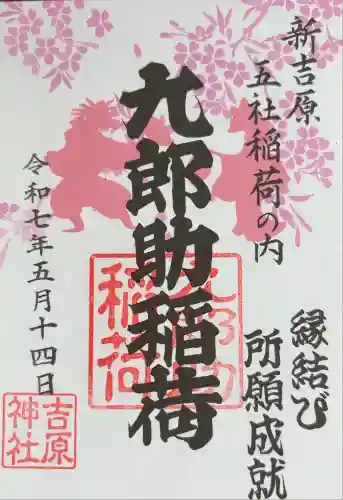 新吉原
五社稲荷の内
縁結び
所願成就
九郎助稲荷
九郎助
稲荷
令和七年五月十四日
吉原
神社